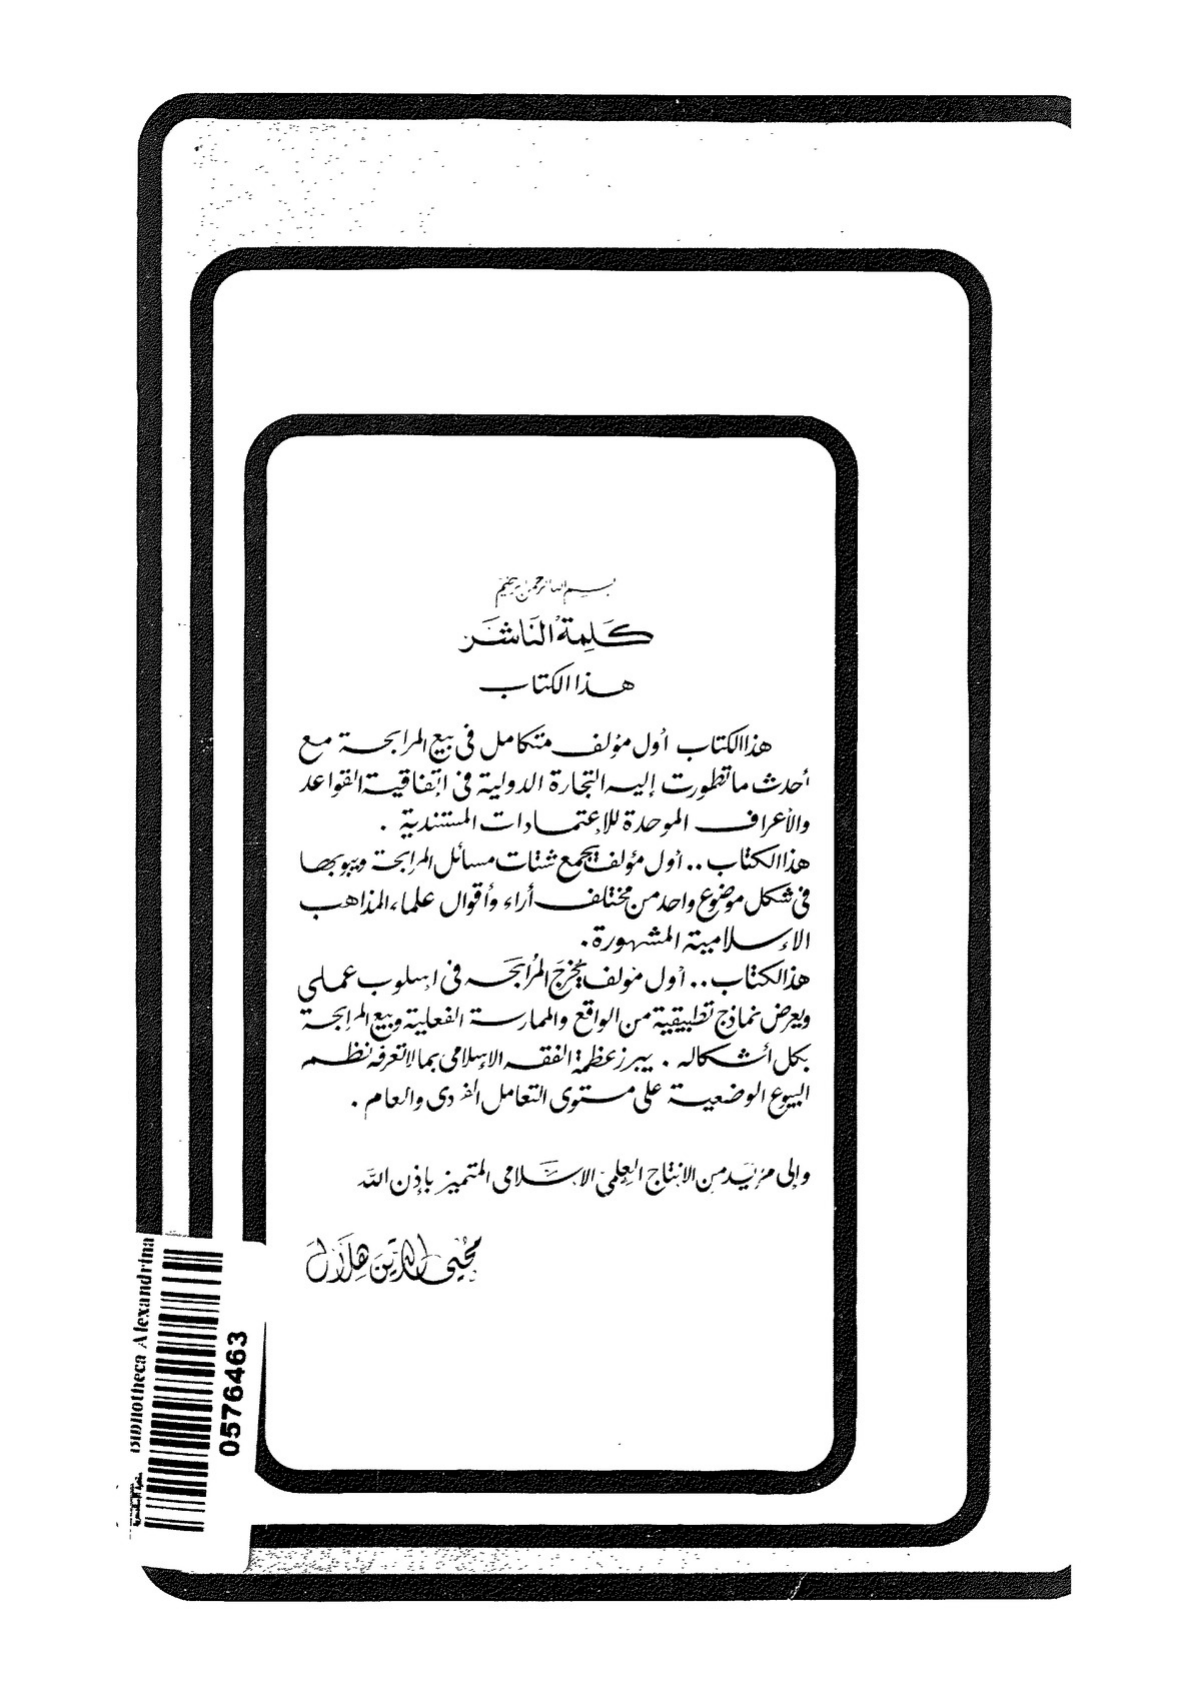 بسم الله الرحمن الرحيم
كَلِمة النَاشَر
هذا الكتاب
هذا الكتاب أول مؤلف متكامل في بيع المرابحة مع
أحدث ما تطورت إليه التجارة الدولية في اتفاقية القواعد
والأعراف الموحدة للإعتمادات المستندية .
هذا الكتاب .. أول مؤلف يجمع شتات مسائل المرابحة ويبوبها
في شكل موضوع واحد من مختلف أراء وأقوال علماء المذاهب
الإسلامية المشهورة .
هذا الكتاب .. أول مؤلف يخرج المُرابَحة في اسلوب عملي
ويعرض نماذج تطبيقية من الواقع والممارسة الفعلية وبيع المرابحة
بكل أشكاله . يبرز عظمة الفقه الإسلامى بما لا تعرفه نظم
البيوع الوضعية على مستوى التعامل الفردى والعام .
وإلى مزيد من الانتاج العلمى الاسلامى المتميز بإذن الله
محيى الدين هلال
Bibliotheca Alexandrina
0576463